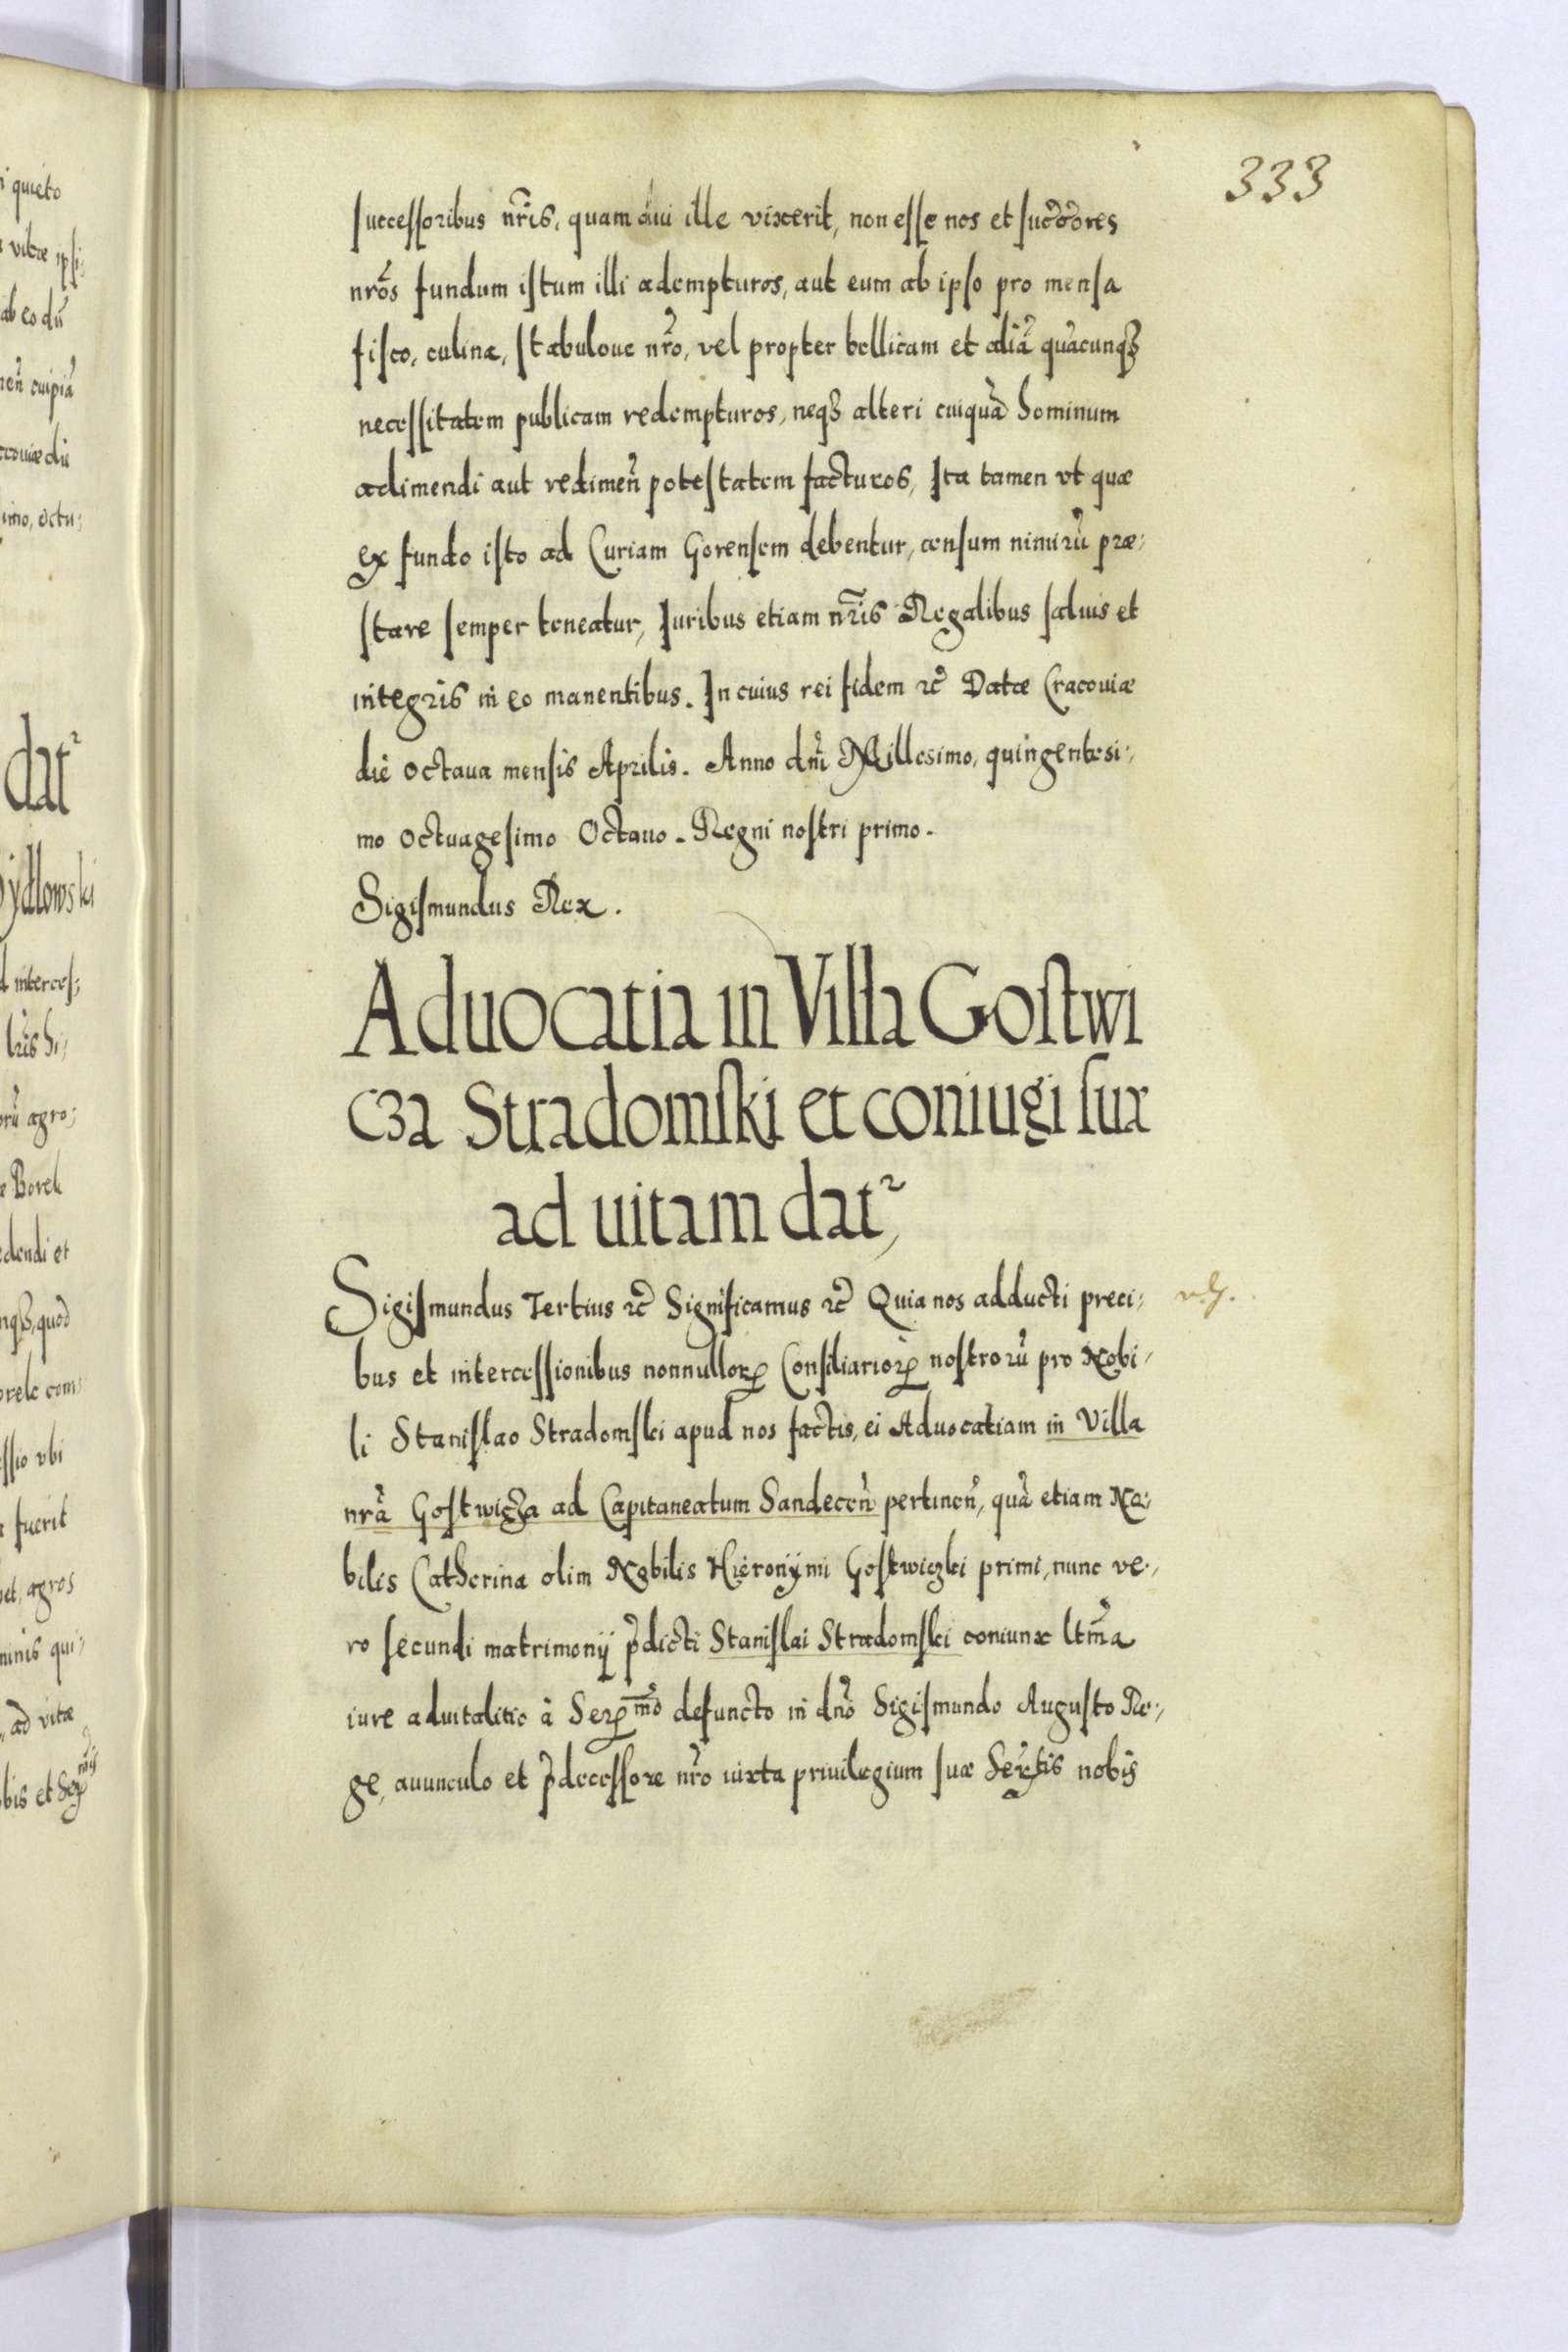 333
successoribus nr̃is, quam diu ille vixerit, non esse nos et succores
nrõs fundum istum illi adempturos, aut eum ab ipso pro mensa
fisco, culina, stabuloue nrõ, vel propter bellicam et aliã quãcunqꝫ
necessitatem publicam redempturos, neqꝫ alteri cuiquã hominum
adimendi aut redimen̄ potestatem facturos, Ita tamen vt quæ
ex fundo isto ad Curiam Gorensem debentur, censum nimirũ præ:
stare semper teneatur, Iuribus etiam nr̃is Regalibus saluis et
integris in eo manentibus. In cuius rei fidem ꝛc̃ Datæ Cracouiæ
die octaua mensis Aprilis. Anno dnĩ Millesimo, quingentesi:
mo octuagesimo Octauo. Regni nostri primo.
Sigismundus Rex.
Aduocatia in Villa Gostwi
cza Stradomski et coniugi suæ
ad uitam datꝛ
Sigismundus Tertius ꝛc̃ Significamus ꝛc̃ Quia nos adducti preci:
bus et intercessionibus nonnulloꝝ Consiliarioꝝ nostrorũ pro Nobi:
li Stanislao Stradomski apud nos factis, ei Aduocatiam in Villa
nrã Gostwicza ad Capitaneatum Sandecen̄ pertinen̄, quã etiam No:
bilis Catherina olim Nobilis Hieronÿmi Gostwiczki primi, nunc ve:
ro secundi matrimonij p̃dicti Stanislai Stradomski coniunx ltm̃a
iure aduitalitio à Serꝫmo defuncto in dnõ Sigismundo Augusto Re:
ge, auunculo et p̃decessore nrõ iuxta priuilegium suæ Sertis nobis